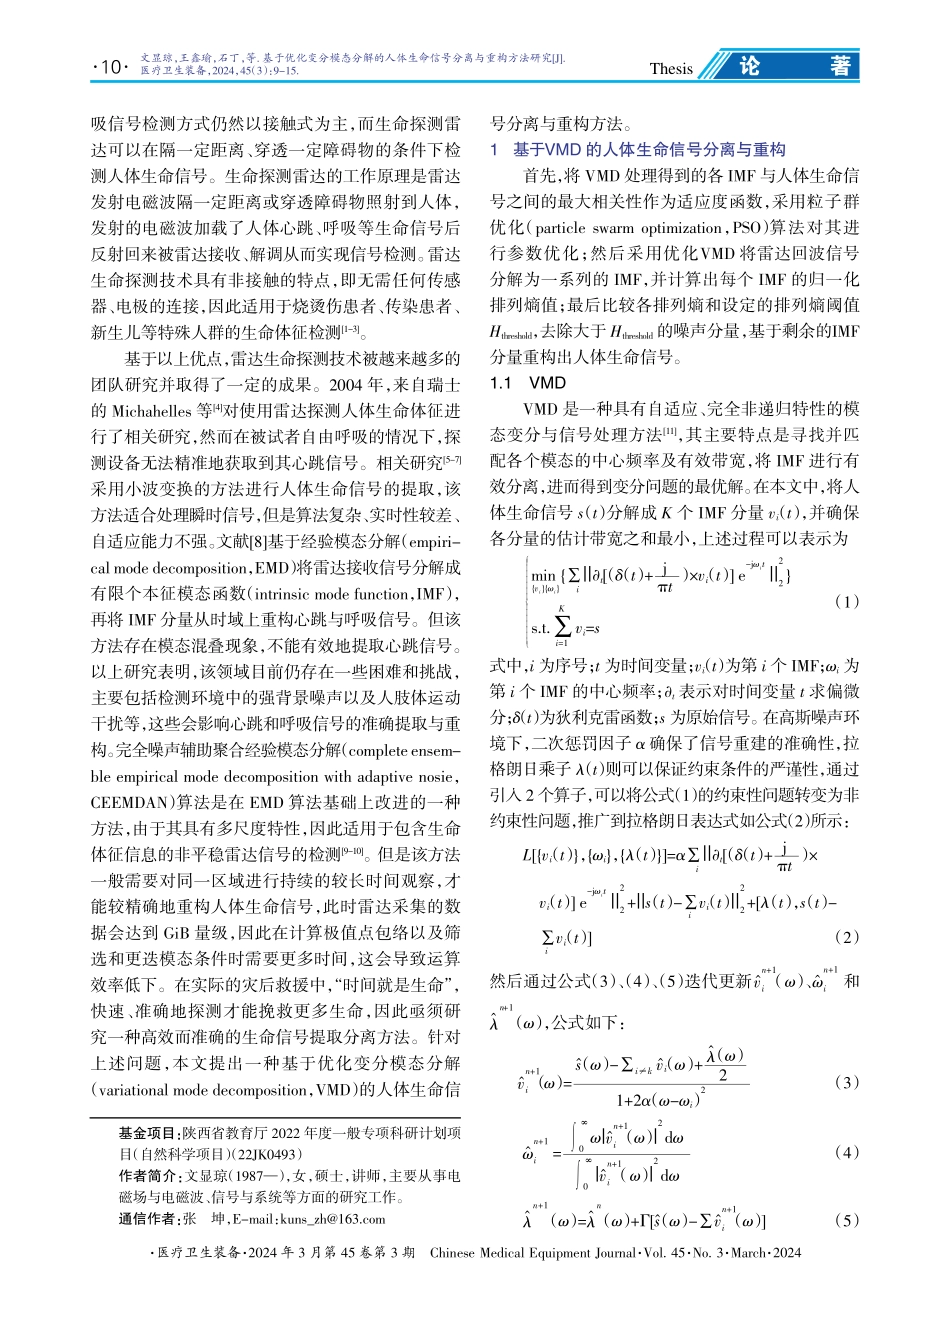 ·10·
文显琼,王鑫瑜,石丁,等.基于优化变分模态分解的人体生命信号分离与重构方法研究[J].
医疗卫生装备,2024,45(3):9-15.
Thesis 论 著
吸信号检测方式仍然以接触式为主,而生命探测雷
达可以在隔一定距离、穿透一定障碍物的条件下检
测人体生命信号。生命探测雷达的工作原理是雷达
发射电磁波隔一定距离或穿透障碍物照射到人体,
发射的电磁波加载了人体心跳、呼吸等生命信号后
反射回来被雷达接收、解调从而实现信号检测。雷达
生命探测技术具有非接触的特点,即无需任何传感
器、电极的连接,因此适用于烧烫伤患者、传染患者、
新生儿等特殊人群的生命体征检测[1-3]。
基于以上优点,雷达生命探测技术被越来越多的
团队研究并取得了一定的成果。2004 年,来自瑞士
的 Michahelles 等[4]对使用雷达探测人体生命体征进
行了相关研究,然而在被试者自由呼吸的情况下,探
测设备无法精准地获取到其心跳信号。相关研究[5-7]
采用小波变换的方法进行人体生命信号的提取,该
方法适合处理瞬时信号,但是算法复杂、实时性较差、
自适应能力不强。文献[8]基于经验模态分解(empiri-
cal mode decomposition,EMD)将雷达接收信号分解成
有限个本征模态函数(intrinsic mode function,IMF),
再将 IMF 分量从时域上重构心跳与呼吸信号。但该
方法存在模态混叠现象,不能有效地提取心跳信号。
以上研究表明,该领域目前仍存在一些困难和挑战,
主要包括检测环境中的强背景噪声以及人肢体运动
干扰等,这些会影响心跳和呼吸信号的准确提取与重
构。完全噪声辅助聚合经验模态分解(complete ensem-
ble empirical mode decomposition with adaptive nosie,
CEEMDAN)算法是在 EMD 算法基础上改进的一种
方法,由于其具有多尺度特性,因此适用于包含生命
体征信息的非平稳雷达信号的检测[9-10]。但是该方法
一般需要对同一区域进行持续的较长时间观察,才
能较精确地重构人体生命信号,此时雷达采集的数
据会达到 GiB 量级,因此在计算极值点包络以及筛
选和更迭模态条件时需要更多时间,这会导致运算
效率低下。在实际的灾后救援中,“时间就是生命”,
快速、准确地探测才能挽救更多生命,因此亟须研
究一种高效而准确的生命信号提取分离方法。针对
上述问题,本文提出一种基于优化变分模态分解
(variational mode decomposition,VMD)的人体生命信
基金项目:陕西省教育厅 2022 年度一般专项科研计划项
目(自然科学项目)(22JK0493)
作者简介:文显琼(1987—),女,硕士,讲师,主要从事电
磁场与电磁波、信号与系统等方面的研究工作。
通信作者:张 坤,E-mail:kuns_zh@163.com
号分离与重构方法。
1 基于VMD 的人体生命信号分离与重构
首先,将 VMD 处理得到的各 IMF 与人体生命信
号之间的最大相关性作为适应度函数,采用粒子群
优化(particle swarm optimization,PSO)算法对其进
行参数优化;然后采用优化VMD 将雷达回波信号
分解为一系列的 IMF,并计算出每个 IMF 的归一化
排列熵值;最后比较各排列熵和设定的排列熵阈值
H_threshold,去除大于 H_threshold 的噪声分量,基于剩余的IMF
分量重构出人体生命信号。
1.1 VMD
VMD 是一种具有自适应、完全非递归特性的模
态变分与信号处理方法[11],其主要特点是寻找并匹
配各个模态的中心频率及有效带宽,将 IMF 进行有
效分离,进而得到变分问题的最优解。在本文中,将人
体生命信号 s(t)分解成 K 个 IMF 分量 v_i(t),并确保
各分量的估计带宽之和最小,上述过程可以表示为
{ min_{{v_i}{ω_i}} {∑_i ||∂_t[(δ(t)+j/(πt))×v_i(t)] e^{-jω_i t}||_2^2}
s.t. ∑_{i=1}^K v_i=s (1)
式中,i 为序号;t 为时间变量;v_i(t)为第 i 个 IMF;ω_i 为
第 i 个 IMF 的中心频率;∂_t 表示对时间变量 t 求偏微
分;δ(t)为狄利克雷函数;s 为原始信号。在高斯噪声环
境下,二次惩罚因子 α 确保了信号重建的准确性,拉
格朗日乘子 λ(t)则可以保证约束条件的严谨性,通过
引入 2 个算子,可以将公式(1)的约束性问题转变为非
约束性问题,推广到拉格朗日表达式如公式(2)所示:
L[{v_i(t)},{ω_i},{λ(t)}]=α∑_i ||∂_t[(δ(t)+j/(πt))×
v_i(t)] e^{-jω_i t}||_2^2+||s(t)-∑_i v_i(t)||_2^2+[λ(t),s(t)-
∑_i v_i(t)] (2)
然后通过公式(3)、(4)、(5)迭代更新 v̂_i^{n+1}(ω)、ω̂_i^{n+1} 和
λ̂^{n+1}(ω),公式如下:
v̂_i^{n+1}(ω)=(ŝ(ω)-∑_{i≠k} v̂_i(ω)+λ̂(ω)/2)/(1+2α(ω-ω_i)^2) (3)
ω̂_i^{n+1}=(∫_0^∞ ω|v̂_i^{n+1}(ω)|^2 dω)/(∫_0^∞ |v̂_i^{n+1}(ω)|^2 dω) (4)
λ̂^{n+1}(ω)=λ̂^n(ω)+Γ[ŝ(ω)-∑v̂_i^{n+1}(ω)] (5)
·医疗卫生装备·2024 年 3 月第 45 卷第 3 期 Chinese Medical Equipment Journal·Vol. 45·No. 3·March·2024